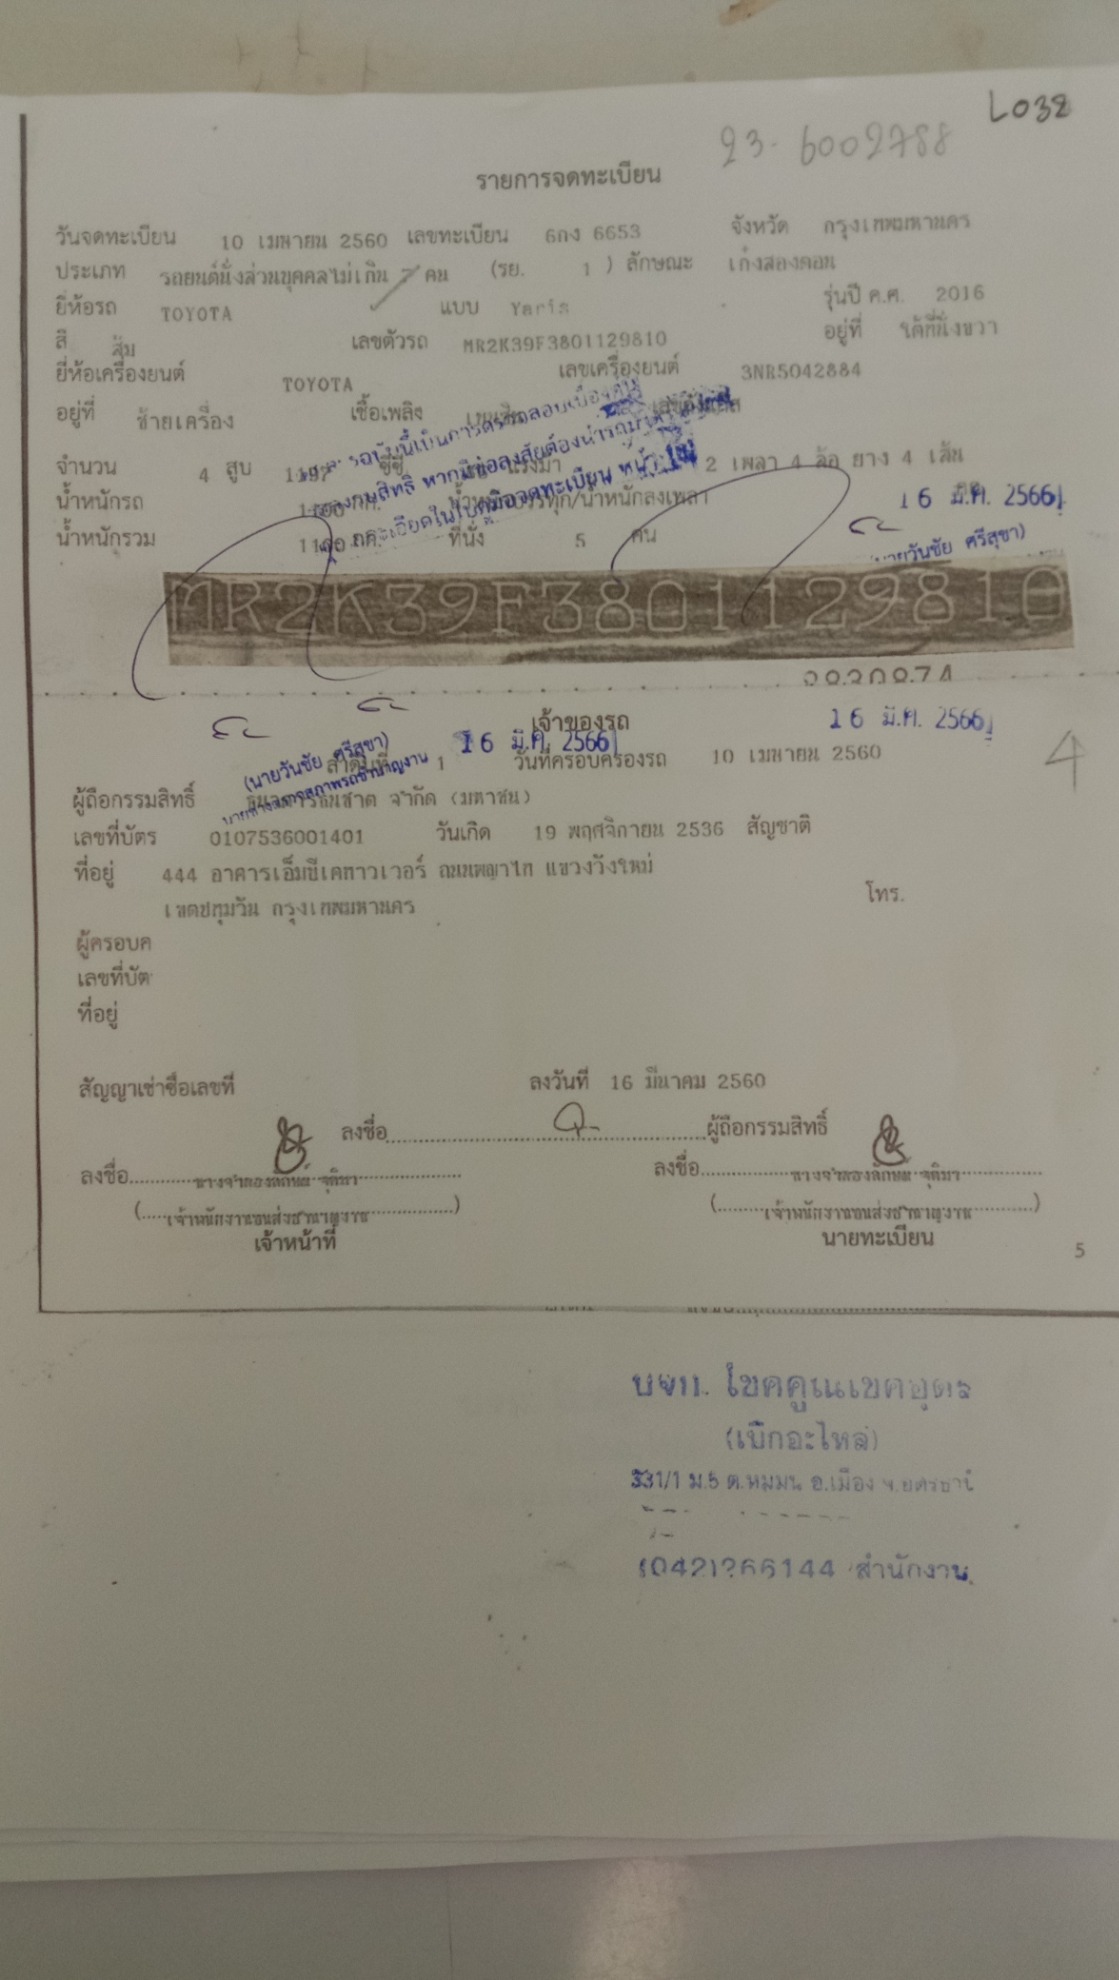 L032
23-6002788
รายการจดทะเบียน
วันจดทะเบียน 10 เมษายน 2560 เลขทะเบียน 6กง 6653 จังหวัด กรุงเทพมหานคร
ประเภท รถยนต์นั่งส่วนบุคคลไม่เกิน 7 คน (รย. 1 ) ลักษณะ เก๋งสองตอน
ยี่ห้อรถ TOYOTA แบบ Yaris รุ่นปี ค.ศ. 2016
สี ส้ม เลขตัวรถ MR2K39F3801129810 อยู่ที่ ใต้ที่นั่งขวา
ยี่ห้อเครื่องยนต์ TOYOTA เลขเครื่องยนต์ 3NR5042884
อยู่ที่ ซ้ายเครื่อง เชื้อเพลิง
จำนวน 4 สูบ 1197 ซีซี 2 เพลา 4 ล้อ ยาง 4 เส้น
น้ำหนักรถ
16 มี.ค. 2566
น้ำหนักรวม ที่นั่ง 5 คน
(นายวันชัย ศรีสุขา)
MR2K39F3801129810
เจ้าของรถ
16 มี.ค. 2566
16 มี.ค. 2566
(นายวันชัย ศรีสุขา)
ลำดับที่ 1 วันที่ครอบครองรถ 10 เมษายน 2560
4
ผู้ถือกรรมสิทธิ์ ธนาคารธนชาต จำกัด (มหาชน)
เลขที่บัตร 0107536001401 วันเกิด 19 พฤศจิกายน 2536 สัญชาติ
ที่อยู่ 444 อาคารเอ็มบีเคทาวเวอร์ ถนนพญาไท แขวงวังใหม่
เขตปทุมวัน กรุงเทพมหานคร โทร.
ผู้ครอบค
เลขที่บัต
ที่อยู่
สัญญาเช่าซื้อเลขที่ ลงวันที่ 16 มีนาคม 2560
ลงชื่อ ผู้ถือกรรมสิทธิ์
ลงชื่อ ลงชื่อ
(เจ้าพนักงานขนส่งชำนาญงาน) (เจ้าพนักงานขนส่งชำนาญงาน)
เจ้าหน้าที่ นายทะเบียน
5
บจก. โชคคูณเขตอุดร
(เบิกอะไหล่)
331/1 ม.5 ต.หมูม่น อ.เมือง จ.อุดรธานี
สำนักงาน